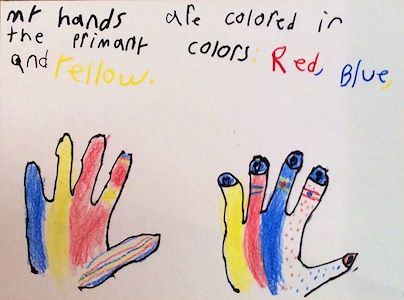 my hands are colored in
the primary colors: Red, Blue,
and yellow.